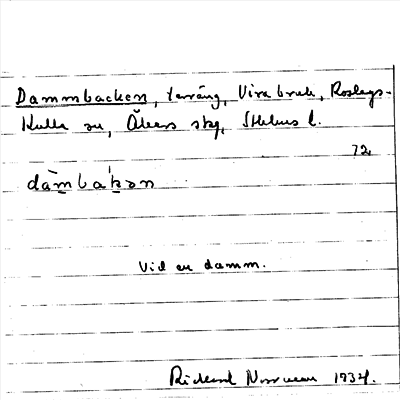 Dammbacken, terräng, Vira bruk, Roslags-
Kulla sn, Åkers skg, Sthlms l.
72
dàm̲baḱ̲ən
Vid en damm.
Rickard 1934.